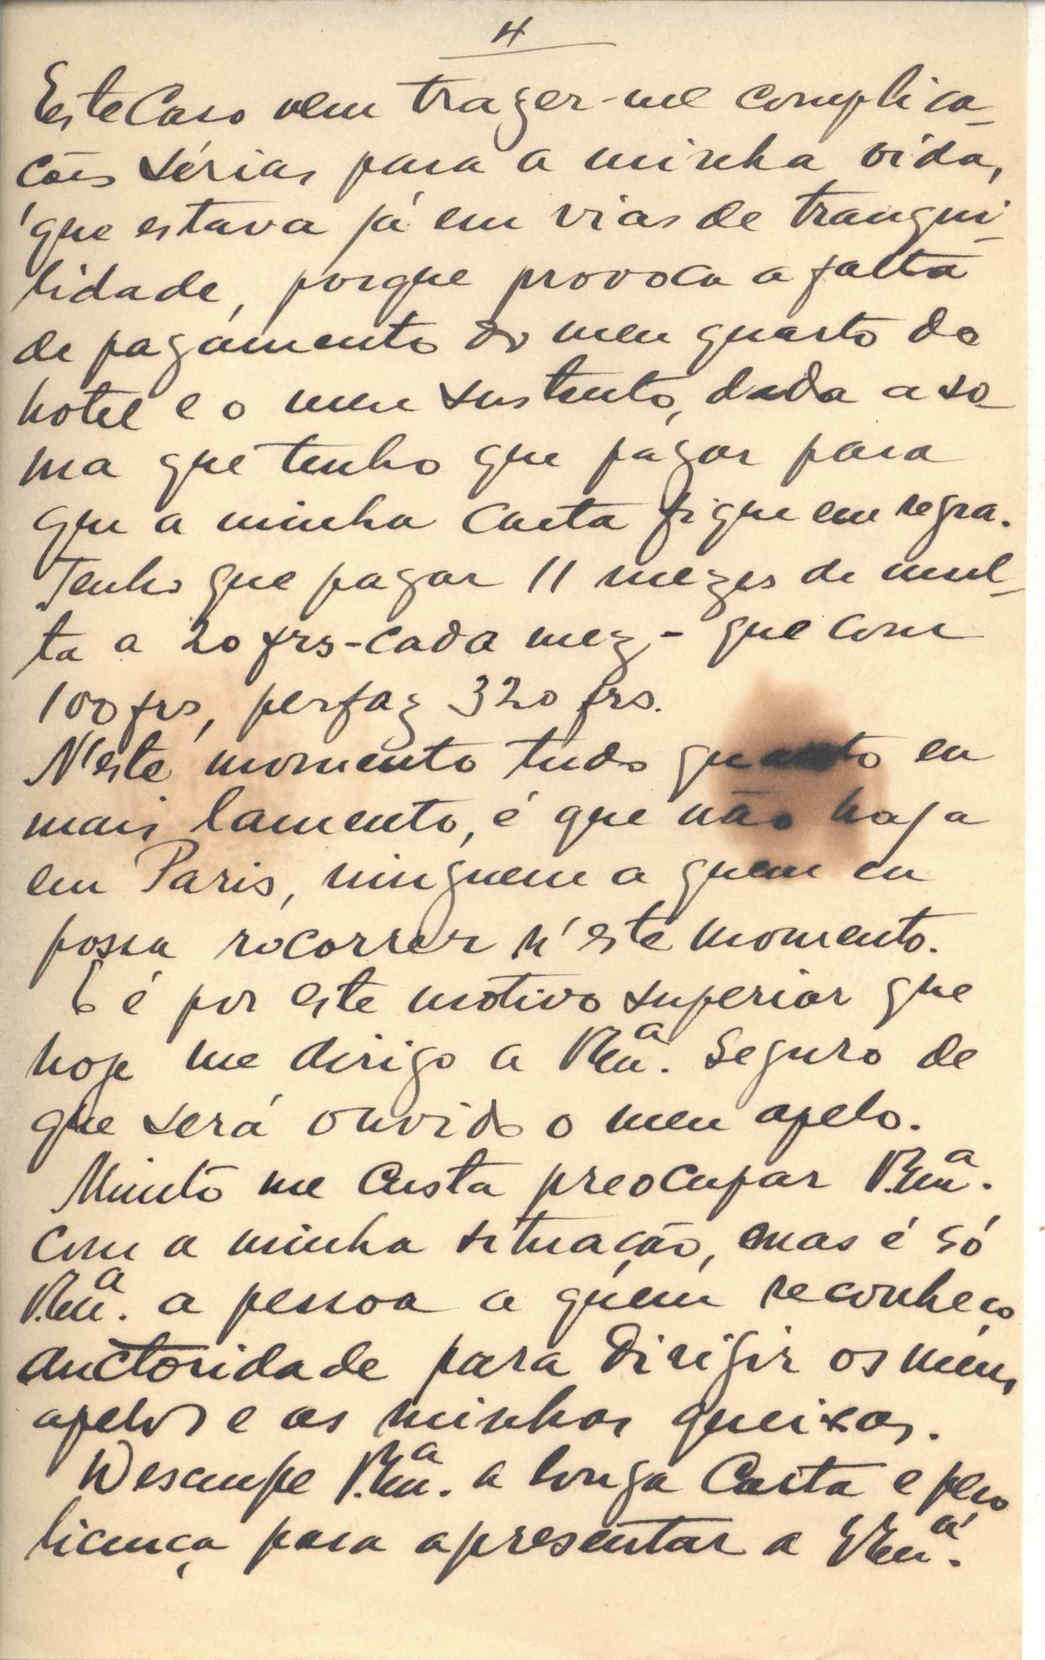 4
Este Caso vem trazer-me complica-
ções sérias para a minha vida,
que estava já em vias de tranqui-
lidade, porque provoca a falta
de pagamento do meu quarto do
hotel e o meu sustento, dada a so-
ma que tenho que pagar para
que a minha carta fique em regra.
Tenho que pagar 11 mezes de mul-
ta a 20 frs-cada mez,- que com
100 frs, perfaz 320 frs.
N'este momento tudo quanto eu
mais lamento, é que não haja
em Paris, ninguem a quem eu
possa recorrer n'este momento.
E é por este motivo superior que
hoje me dirigo a V.Exª. Seguro de
que será ouvido o meu apelo.
Muito me custa preocupar V.Exª.
com a minha situação, mas é só
V.Exª. a pessoa a quem reconheço
auctoridade para dirigir os meus
apelos e as minhas queixas.
Desculpe V.Exª. a longa Carta e peço
licença para apresentar a V.Exª.